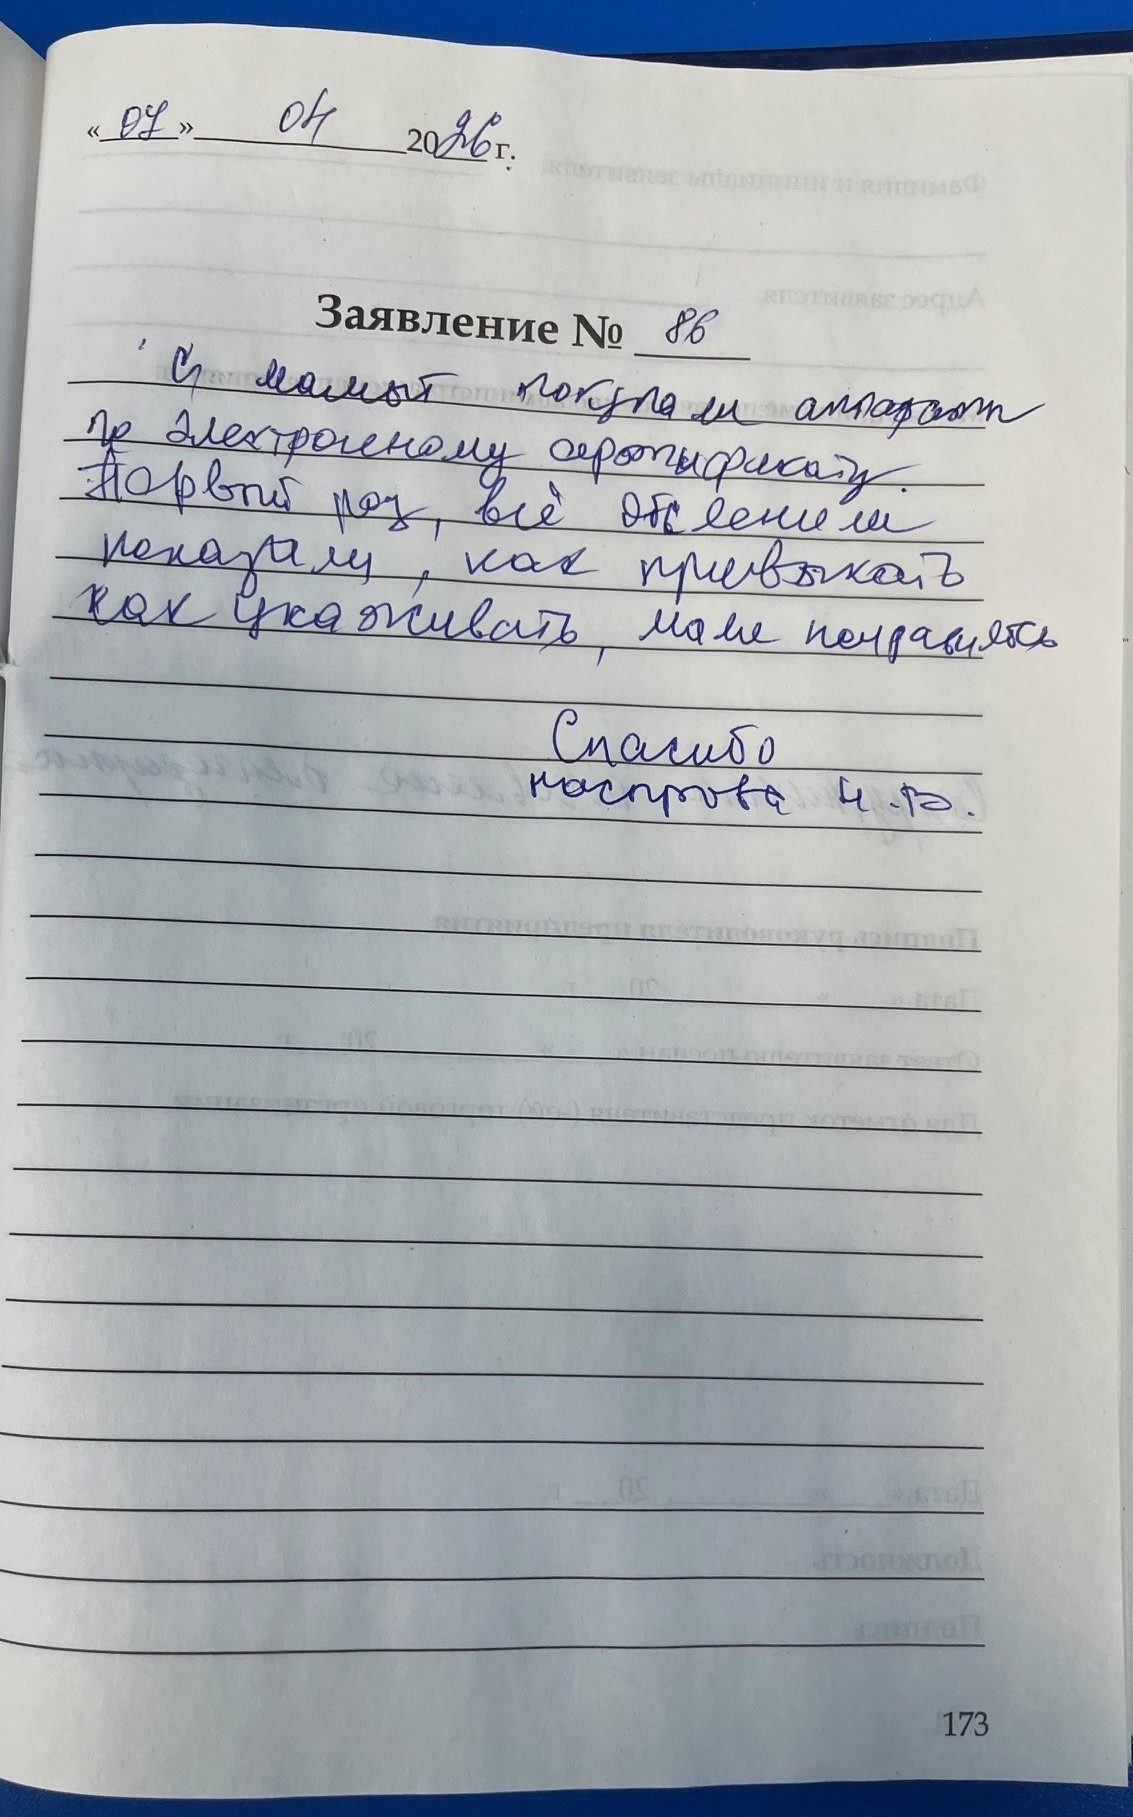 «07» 04 2026 г.
Заявление № 86
С мамый покупали аппарат
по электроенному сертификату.
Первый раз, всё обьесенили
показали, как привыкать
как ухаживать, маме понравилось
Спасибо
173